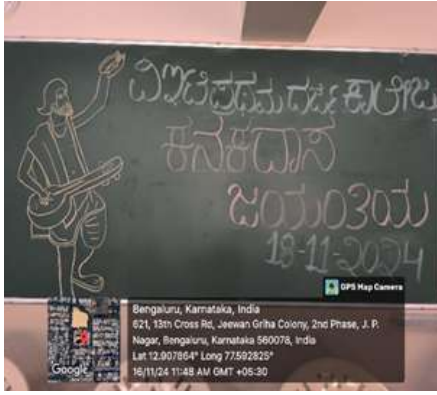 ವಿಇಟಿ ಪ್ರಥಮ ದರ್ಜೆ ಕಾಲೇಜು
ಕನಕದಾಸ
ಜಯಂತಿಯ
18-11-2024
GPS Map Camera
Bengaluru, Karnataka, India
621, 13th Cross Rd, Jeewan Griha Colony, 2nd Phase, J. P.
Nagar, Bengaluru, Karnataka 560078, India
Lat 12.907864° Long 77.592825°
16/11/24 11:48 AM GMT +05:30
Google